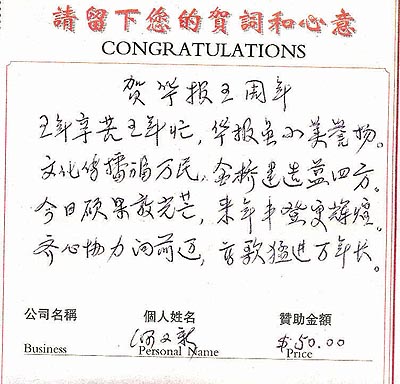 請留下您的賀詞和心意
CONGRATULATIONS
贺华报五周年
五年辛苦五年忙，华报虽小美誉扬。
文化传播福万民，金桥建造益四方。
今日硕果放光芒，来年丰登更辉煌。
齐心协力向前迈，高歌猛进万年长。
公司名稱 個人姓名 贊助金額
Business Personal Name Price
何文新 $50.00